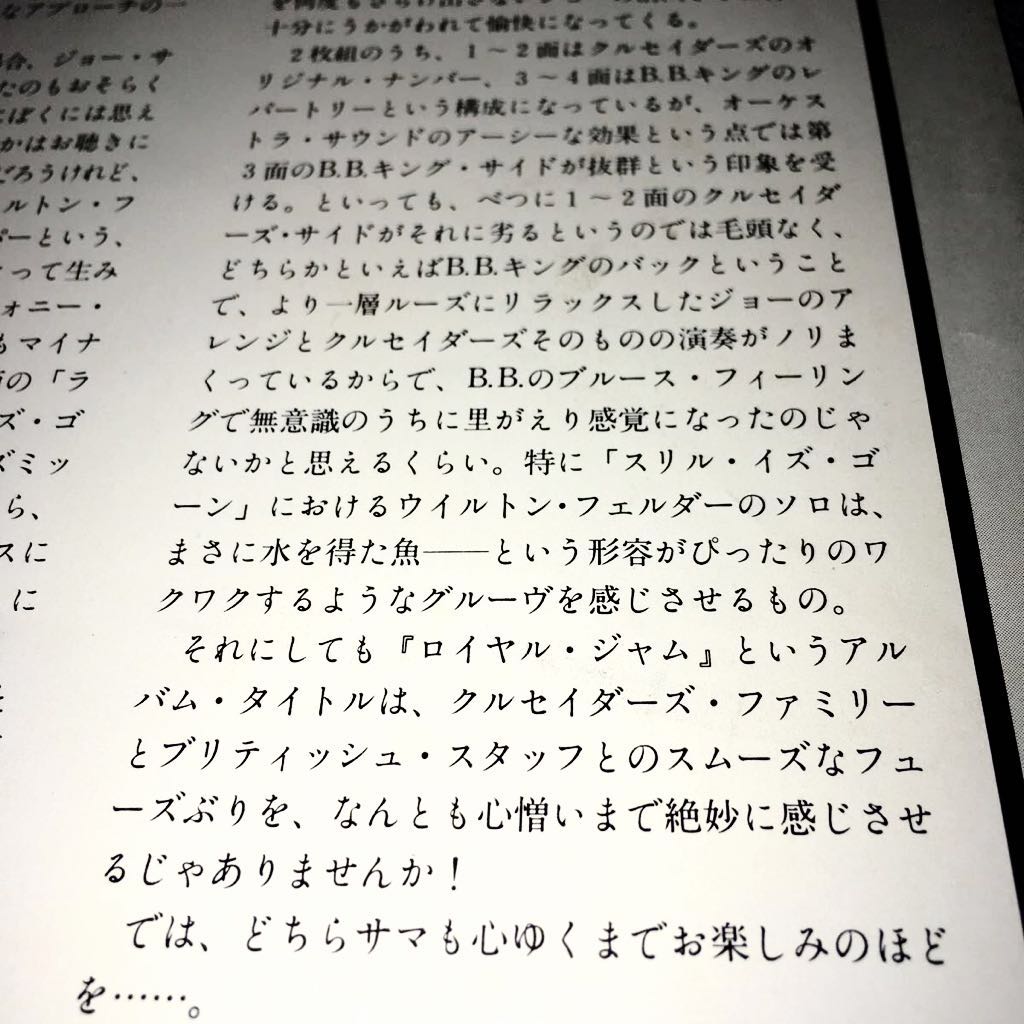 なアプローチの一
合、ジョー・サ
たのもおそらく
にぼくには思え
かはお聴きに
どろうけれど、
ルトン・フ
パーという、
とって生み
ォニー・
もマイナ
の「ラ
ズ・ゴ
ズミッ
ら、
スに
に
十分にうかがわれて愉快になってくる。
2枚組のうち、1〜2面はクルセイダーズのオ
リジナル・ナンバー、3〜4面はB.B.キングのレ
パートリーという構成になっているが、オーケス
トラ・サウンドのアーシーな効果という点では第
3面のB.B.キング・サイドが抜群という印象を受
ける。といっても、べつに1〜2面のクルセイダ
ーズ・サイドがそれに劣るというのでは毛頭なく、
どちらかといえばB.B.キングのバックということ
で、より一層ルーズにリラックスしたジョーのア
レンジとクルセイダーズそのものの演奏がノリま
くっているからで、B.B.のブルース・フィーリン
グで無意識のうちに里がえり感覚になったのじゃ
ないかと思えるくらい。特に「スリル・イズ・ゴ
ーン」におけるウイルトン・フェルダーのソロは、
まさに水を得た魚——という形容がぴったりのワ
クワクするようなグルーヴを感じさせるもの。
それにしても『ロイヤル・ジャム』というアル
バム・タイトルは、クルセイダーズ・ファミリー
とブリティッシュ・スタッフとのスムーズなフュ
ーズぶりを、なんとも心憎いまで絶妙に感じさせ
るじゃありませんか！
では、どちらサマも心ゆくまでお楽しみのほど
を……。